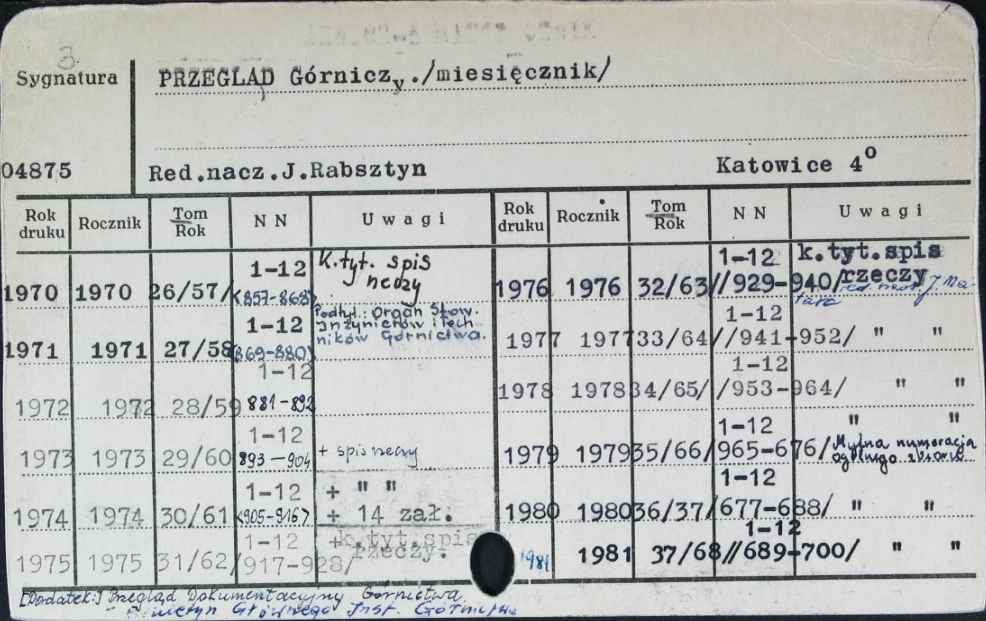 3
Sygnatura
PRZEGLĄD Górniczy./miesięcznik/
04875
Red.nacz.J.Rabsztyn Katowice 4°
Rok druku Rocznik Tom Rok NN Uwagi
1970 1970 26/57/ 1-12 <857-868> K.tyt. spis rzeczy
1971 1971 27/58 1-12 869-880) Podtyt.: Organ Stow. Inżynierów i Techników Górnictwa.
1972 1972 28/59 1-12 881-892
1973 1973 29/60 1-12 893-904 + spis rzeczy
1974 1974 30/61 1-12 <905-916> + " " + 14 zał.
1975 1975 31/62/ 1-12 917-928/ +k.tyt.spis rzeczy.
Rok druku Rocznik Tom Rok NN Uwagi
1976 1976 32/63/ 1-12 /929-940/ k.tyt.spis rzeczy
1977 1977 33/64/ 1-12 /941-952/ " "
1978 1978 34/65/ 1-12 /953-964/ " "
1979 1979 35/66/ 1-12 965-676/ " " Mylna numeracja ogólnego zbioru
1980 1980 36/37/ 1-12 677-688/ " "
1981 1981 37/68/ 1-12 /689-700/ " "
[Dodatek:] Przegląd Dokumentacyjny Górnictwa
Biuletyn Głównego Inst. Górnictwa